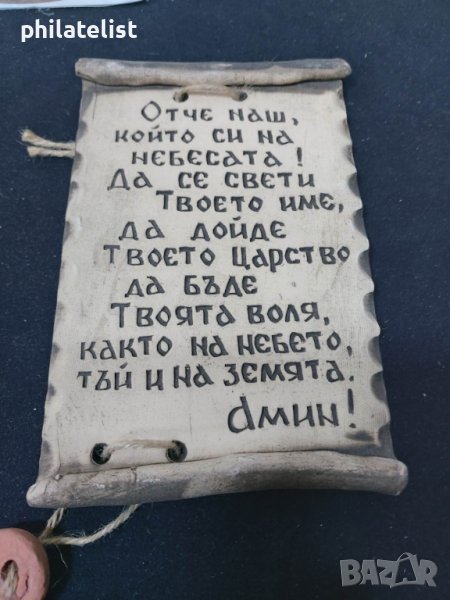 philatelist
Отче наш,
който си на
небесата!
Да се свети
Твоето име,
да дойде
Твоето Царство
да бъде
Твоята воля,
както на небето,
тъй и на земята.
Амин!
BAZAR